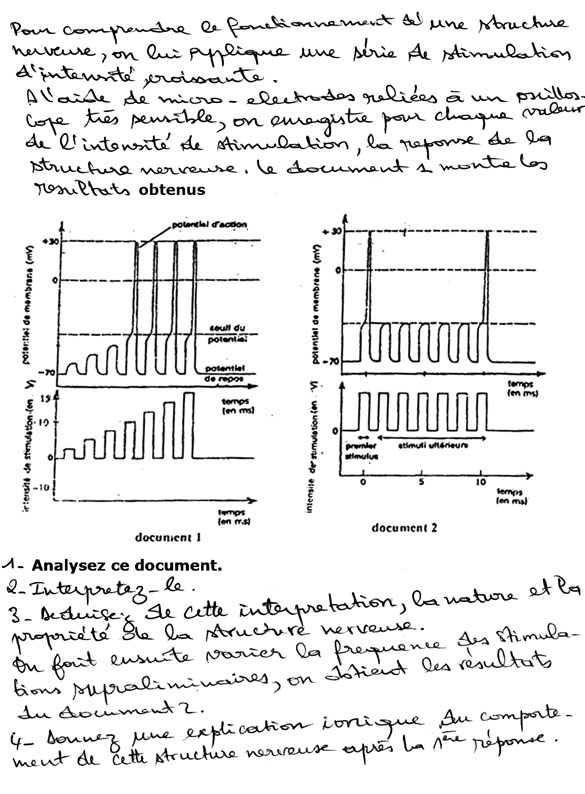 Pour comprendre le fonctionnement d'une structure
nerveuse, on lui applique une série de stimulation
d'intensité croissante.
A l'aide de micro-electrodes reliées à un oscillos-
cope très sensible, on enregistre pour chaque valeur
de l'intensité de stimulation, la reponse de la
structure nerveuse. le document 1 monte les
resultats obtenus
potentiel d'action
+30
0
-70
potentiel de membrane (mV)
seuil du
potentiel
potentiel
de repos
temps
(en ms)
15
10
0
-10
intensité de stimulation (en V)
temps
(en ms)
document 1
+30
0
-70
potentiel de membrane (mV)
temps
(en ms)
intensité de stimulation (en V)
0
premier
stimulus
stimuli ultérieurs
0
5
10
temps
(en ms)
document 2
1- Analysez ce document.
2- Interpretez-le.
3- Deduisez de cette interpretation, la nature et la
propriété de la structure nerveuse.
On fait ensuite varier la frequence des stimula-
tions supraliminaires, on obtient les résultats
du document 2.
4- Donnez une explication ionique du comporte-
ment de cette structure nerveuse après la 1ère réponse.